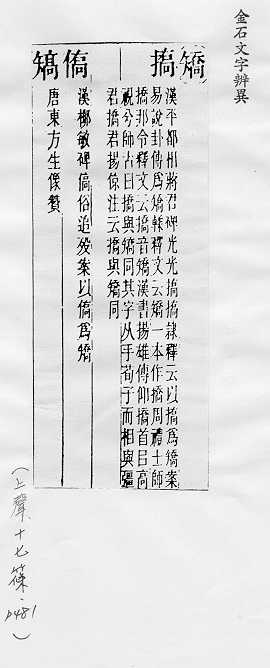 金石文字辨異
矯
撟
漢平都相蔣君碑光光撟撟隸釋云以撟為矯案
易說卦傳為矯輮釋文云矯一本作撟周禮士師
撟邦令釋文云撟音矯漢書揚雄傳仰撟首目高
視兮師古曰撟與矯同其字从手荀子而相與彊
君撟君揚倞注云撟與矯同
僑
漢柳敏碑僑俗追殁案以僑爲矯
唐東方生像贊
(上聲十七篠,p481)